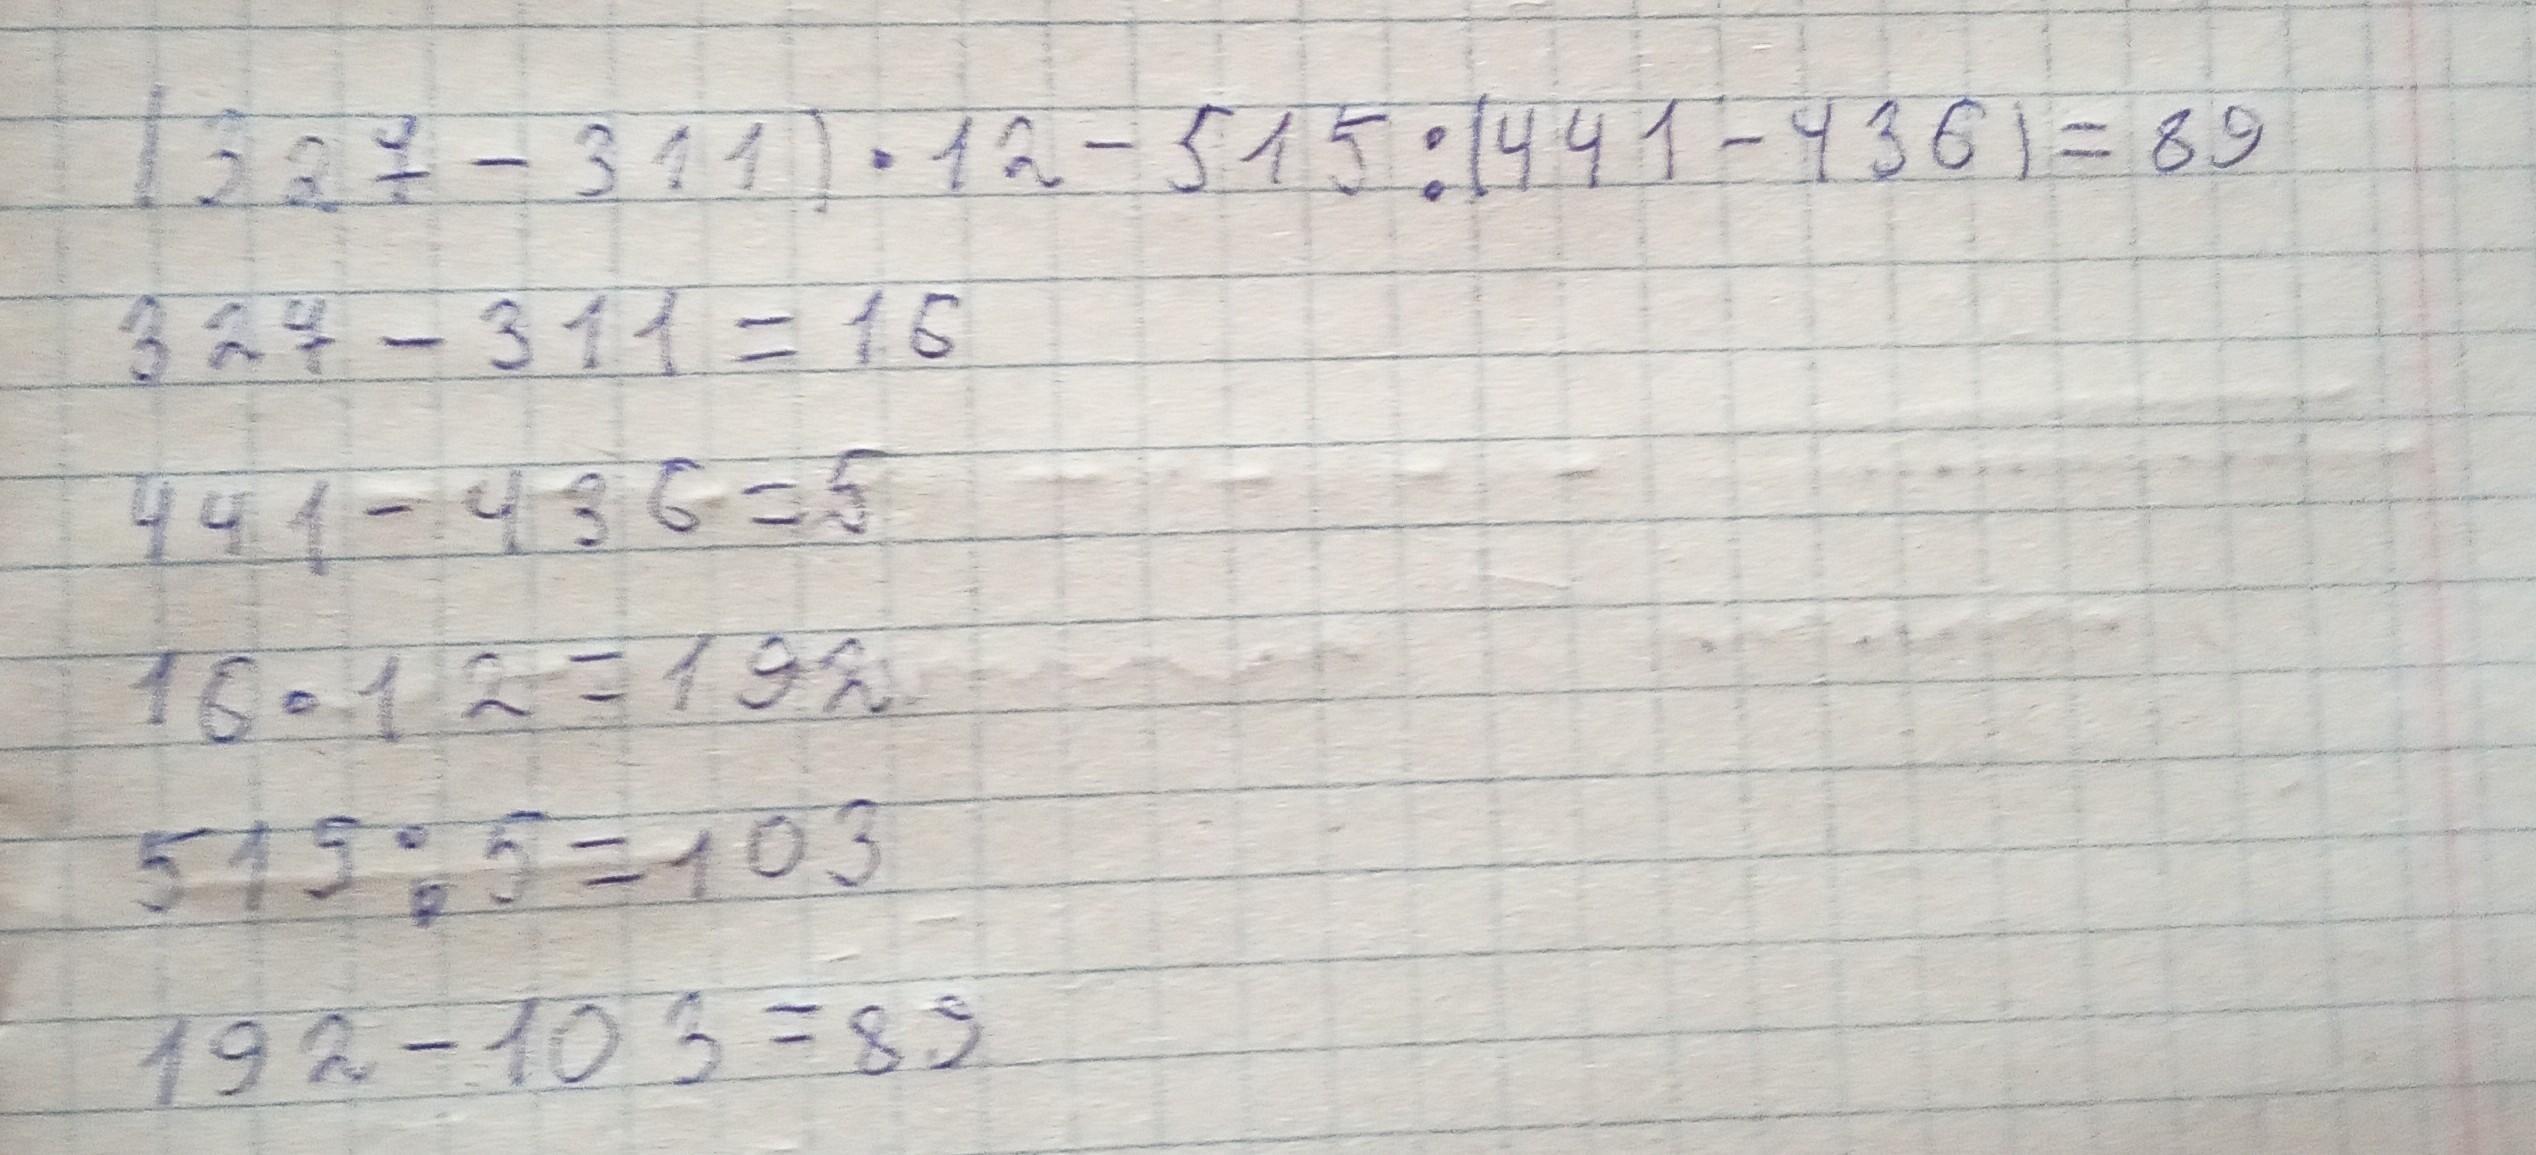 (327-311)·12-515:(441-436)=89
327-311=16
441-436=5
16·12=192
515:5=103
192-103=89